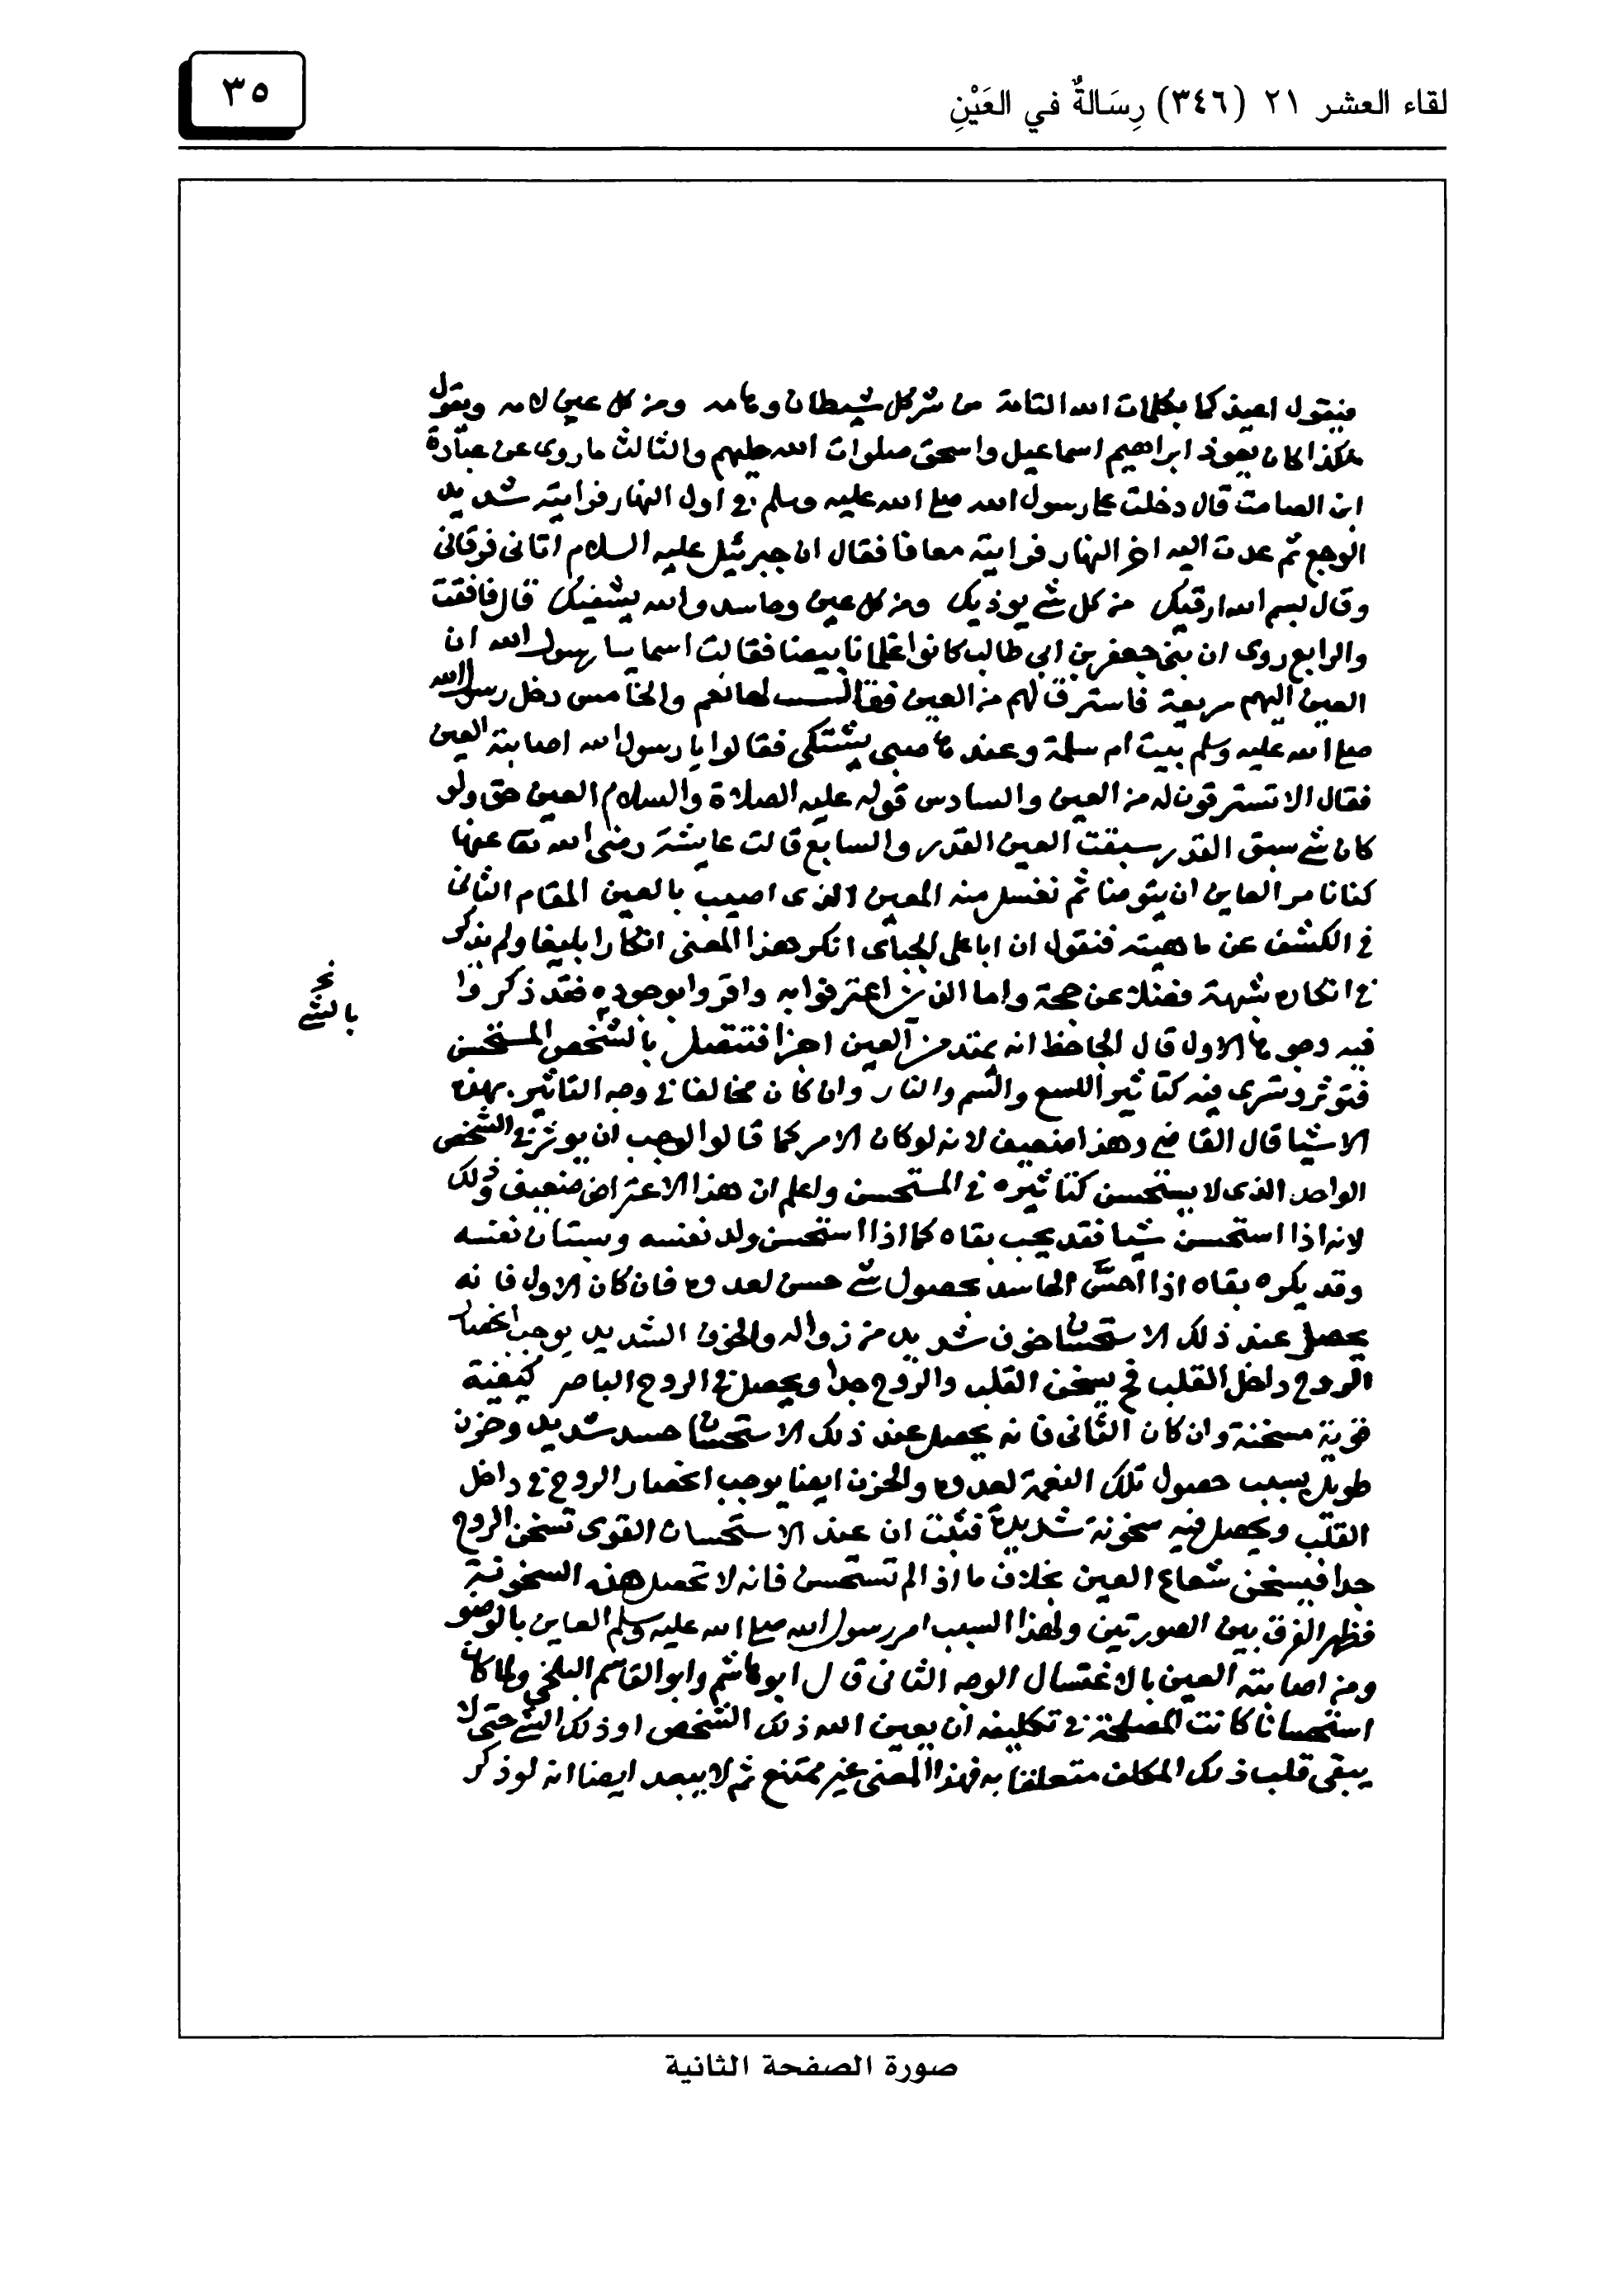 لقاء العشر ٢١ (٣٤٦) رِسَالةٌ في العَيْنِ
٣٥
فيقول اعيذكما بكلمات الله التامة من شر كل شيطان وهامه ومن كل عين لامه ويقول
هكذا كان يعوذ ابراهيم اسماعيل واسحق صلوات الله عليهم والثالث ما روى عن عبادة
ابن الصامت قال دخلت على رسول الله صلى الله عليه وسلم في اول النهار فرايته شديد
الوجع ثم عدت اليه اخر النهار فرايته معافا فقال ان جبرئيل عليه السلام اتانى فرقانى
وقال بسم الله ارقيك من كل شئ يوذيك ومن كل عين وحاسد والله يشفيك قال فافقت
والرابع روى ان بنى جعفر بن ابي طالب كانوا غلمانا بيضا فقالت اسما يا رسول الله ان
العين اليهم سريعة فاسترق لهم من العين فقال لها نعم والخامس دخل رسول الله
صلى الله عليه وسلم بيت ام سلمة وعندها صبى يشتكى فقالوا يا رسول الله اصابته العين
فقال الا تسترقون له من العين والسادس قوله عليه الصلاة والسلام العين حق ولو
كان شئ سبق القدر سبقت العين القدر والسابع قالت عايشة رضى الله تعا عنها
كنا نامر العاين ان يتوضا ثم نغسل منه المعين الذى اصيب بالعين المقام الثانى
فى الكشف عن ماهيته فنقول ان ابا على الجباى انكر هذا المعنى انكارا بليغا ولم يذكر
فى انكاره شبهة فضلا عن حجة واما الذين اعترفوا به واقروا بوجوده فقد ذكروا
فيه وجوها الاول قال الجاحظ انه يمتد من العين اجزا فتتصل بالشخص المستحسن
نخ بالشئ
فتوثر وتسرى فيه كتاثير اللسع والسم والنار وان كان مخالفا فى وجه التاثير بهذه
الاشيا قال القاضى وهذا ضعيف لانه لو كان الامر كما قالوا لوجب ان يوثر فى الشخص
الواحد الذى لا يستحسن كتاثيره فى المستحسن واعلم ان هذا الاعتراض ضعيف وذلك
لانه اذا استحسن شيا فقد يحب بقاه كما اذا استحسن ولد نفسه وبستان نفسه
وقد يكره بقاه اذا احس الحاسد بحصول شئ حسن لعدوه فان كان الاول فانه
يحصل عند ذلك الاستحسان خوف شديد من زواله والخوف الشديد يوجب انحصار
الروح داخل القلب فح يسخن القلب والروح جدا ويحصل فى الروح الباصر كيفية
قوية مسخنة وان كان الثانى فانه يحصل عند ذلك الاستحسان حسد شديد وحزن
طويل بسبب حصول تلك النعمة لعدوه والحزن ايضا يوجب انحصار الروح فى داخل
القلب ويحصل فيه سخونة شديدة فثبت ان عند الاستحسان القوى تسخن الروح
جدا فيسخن شعاع العين بخلاف ما اذا لم تستحسن فانه لا تحصل هذه السخونة
فظهر الفرق بين الصورتين ولهذا السبب امر رسول الله صلى الله عليه وسلم العاين بالوضو
ومن اصابته العين بالاغتسال الوجه الثانى قال ابو هاشم وابو القاسم البلخى ولما كان
استحسانا كانت المصلحة فى تكليفه ان يعين الله ذلك الشخص او ذلك الشئ حتى لا
يبقى قلب ذلك المكلف متعلقا به فهذا المعنى غير ممتنع ثم لا يبعد ايضا انه لو ذكر
صورة الصفحة الثانية